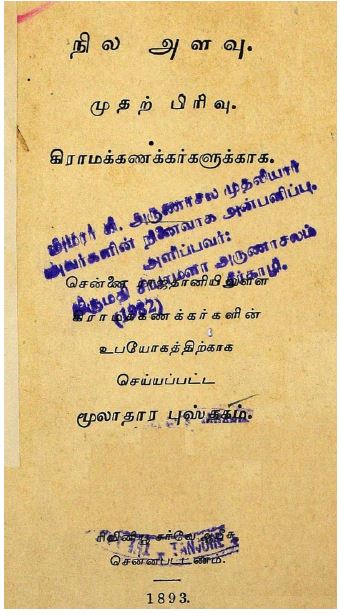 நில அளவு.
முதற் பிரிவு.
கிராமக்கணக்கர்களுக்காக.
அருணாசல முதலியார்
அவர்களின் நினைவாக அன்பளிப்பு.
அளிப்பவர்:
திருமதி அருணாசலம்
சீர்காழி.
(1982)
சென்னை ராஜதானியிலுள்ள
கிராமக்கணக்கர்களின்
உபயோகத்திற்காக
செய்யப்பட்ட
மூலாதார புஸ்தகம்.
TANJORE
சென்னபட்டணம்.
1893.